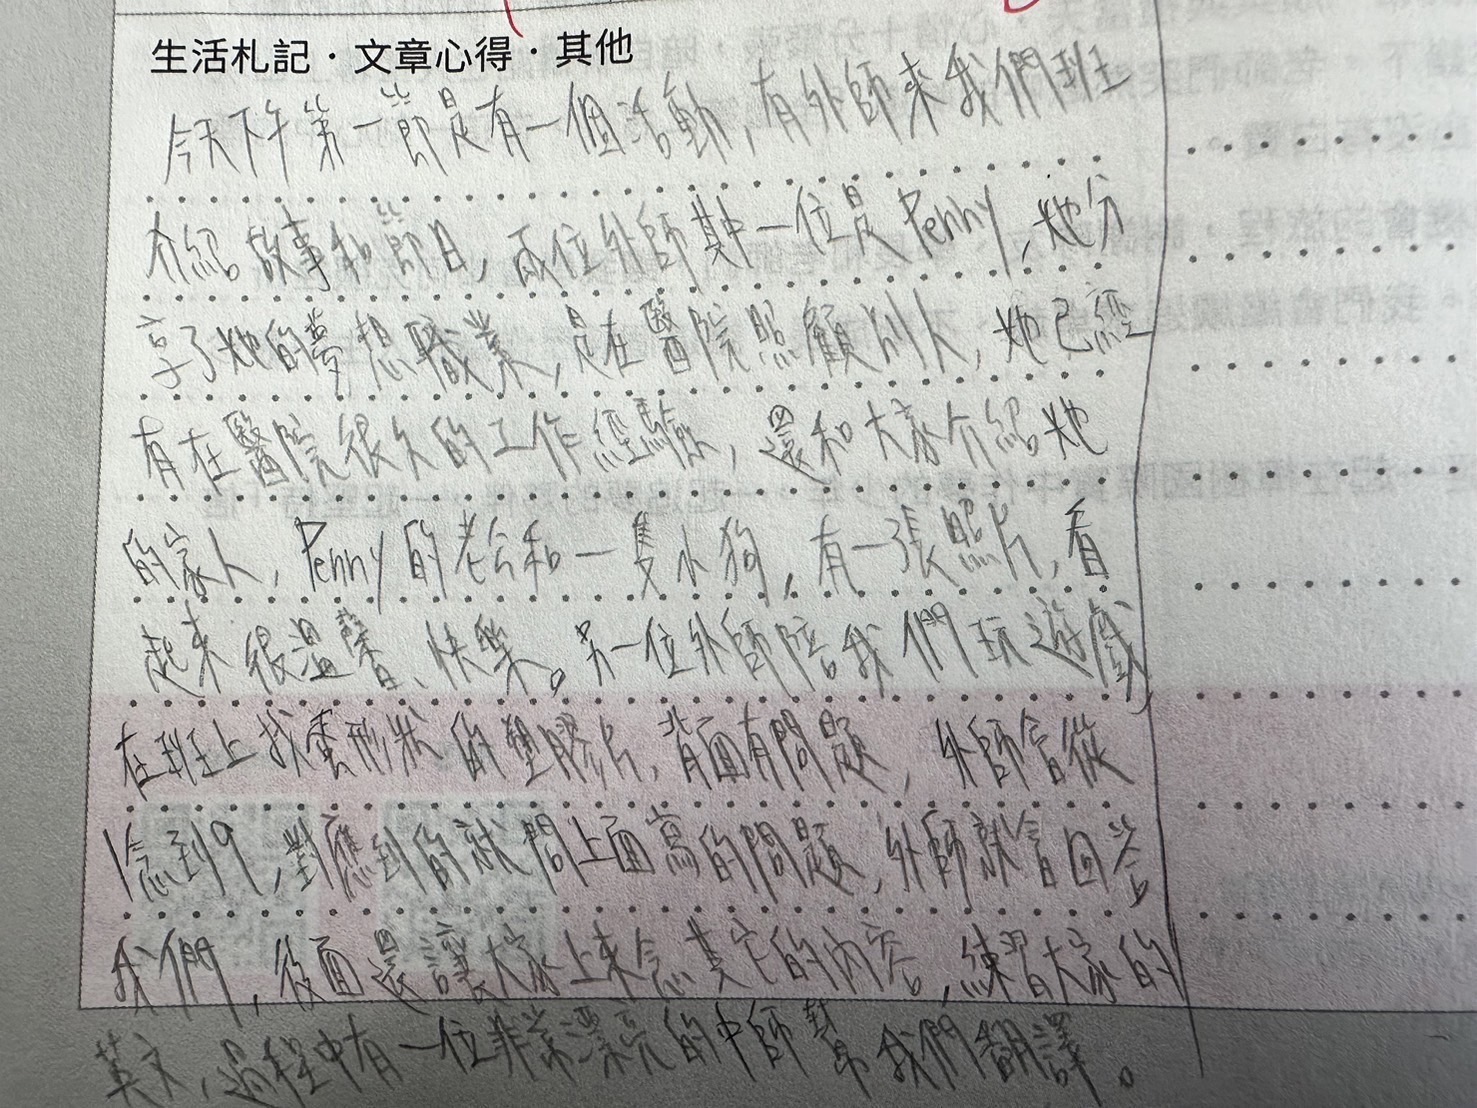 生活札記・文章心得・其他
今天下午第一節是有一個活動,有外師來我們班
介紹故事和節日,兩位外師其中一位是Penny,她分
享了她的夢想職業,是在醫院照顧別人,她已經
有在醫院很久的工作經驗,還和大家介紹她
的家人,Penny的老公和一隻小狗,有一張照片,看
起來很溫馨、快樂。另一位外師陪我們玩遊戲,
在班上找蛋形狀的塑膠片,背面有問題,外師會從
1念到9,對應到的就問上面寫的問題,外師就會回答
我們,後面還讓大家上來念其它的內容,練習大家的
英文,過程中有一位非常漂亮的中師幫我們翻譯。